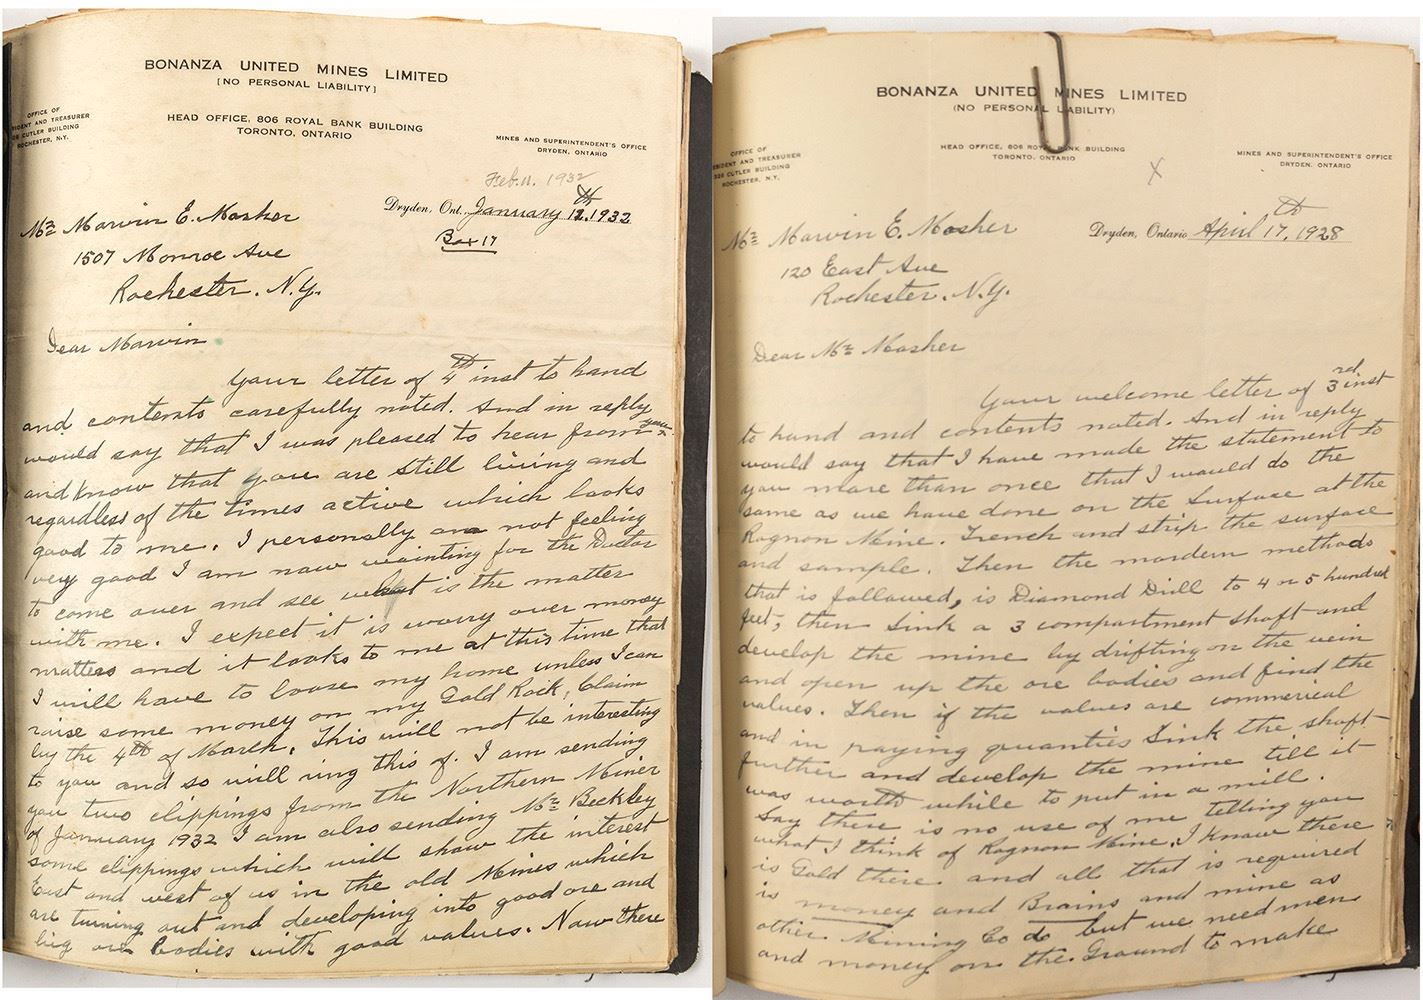 BONANZA UNITED MINES LIMITED
[NO PERSONAL LIABILITY]
OFFICE OF
IDENT AND TREASURER
CUTLER BUILDING
ROCHESTER, N.Y.
HEAD OFFICE, 806 ROYAL BANK BUILDING
TORONTO, ONTARIO
MINES AND SUPERINTENDENT'S OFFICE
DRYDEN, ONTARIO
Feb. 11. 1932
Dryden, Ont. January 12th, 1932
Box 17
Mr Marvin E. Mosher
1507 Monroe Ave
Rochester. N.Y.
Dear Marvin
Your letter of 4th inst to hand
and contents carefully noted. And in reply
would say that I was pleased to hear from you
and know that you are still living and
regardless of the times active which looks
good to me. I personally am not feeling
very good I am now wainting for the Doctor
to come over and see what is the matter
with me. I expect it is worry over money
matters and it looks to me at this time that
I will have to loose my home unless I can
raise some money on my Gold Rock, Claim
by the 4th of March. This will not be interesting
to you and so will ring this of. I am sending
you two clippings from the Northern Miner
of January 1932 I am also sending Mr Beckley
some clippings which will show the interest
East and west of us in the old Mines which
are turning out and developing into good ore and
big ore bodies with good values. Now there
BONANZA UNITED MINES LIMITED
(NO PERSONAL LIABILITY)
OFFICE OF
SIDENT AND TREASURER
CUTLER BUILDING
ROCHESTER, N.Y.
HEAD OFFICE, 806 ROYAL BANK BUILDING
TORONTO, ONTARIO
MINES AND SUPERINTENDENT'S OFFICE
DRYDEN, ONTARIO
x
Dryden, Ontario April 17th, 1928
Mr Marvin E. Mosher
120 East Ave
Rochester. N.Y.
Dear Mr Mosher
Your welcome letter of 3rd inst
to hand and contents noted. And in reply
would say that I have made the statement to
you more than once that I would do the
same as we have done on the Surface at the
Rognon Mine. Trench and strip the surface
and sample. Then the mordern methods
that is followed, is Diamond Drill to 4 or 5 hundred
feet, then Sink a 3 compartment shaft and
develop the mine by drifting on the vein
and open up the ore bodies and find the
values. Then if the values are commerical
and in paying quanties Sink the shaft
further and develop the mine till it
was worth while to put in a mill.
Say there is no use of me telling you
what I think of Rognon Mine. I know there
is Gold there and all that is required
is money and Brains and mine as
other Mining Co do but we need men
and money on the Ground to make